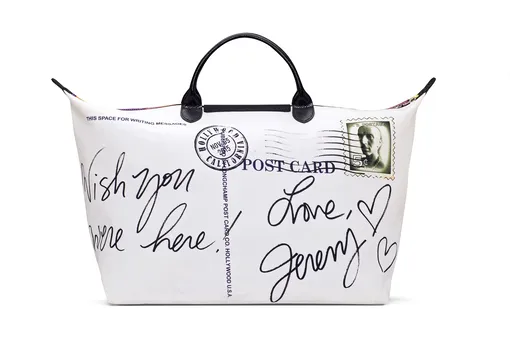 THIS SPACE FOR WRITING MESSAGES
HOLLYWOOD
NOV 05
2015
CALIFORNIA
POST CARD
Wish you
were here!
LONGCHAMP POST CARD CO. HOLLYWOOD U.S.A.
Love,
Jeremy